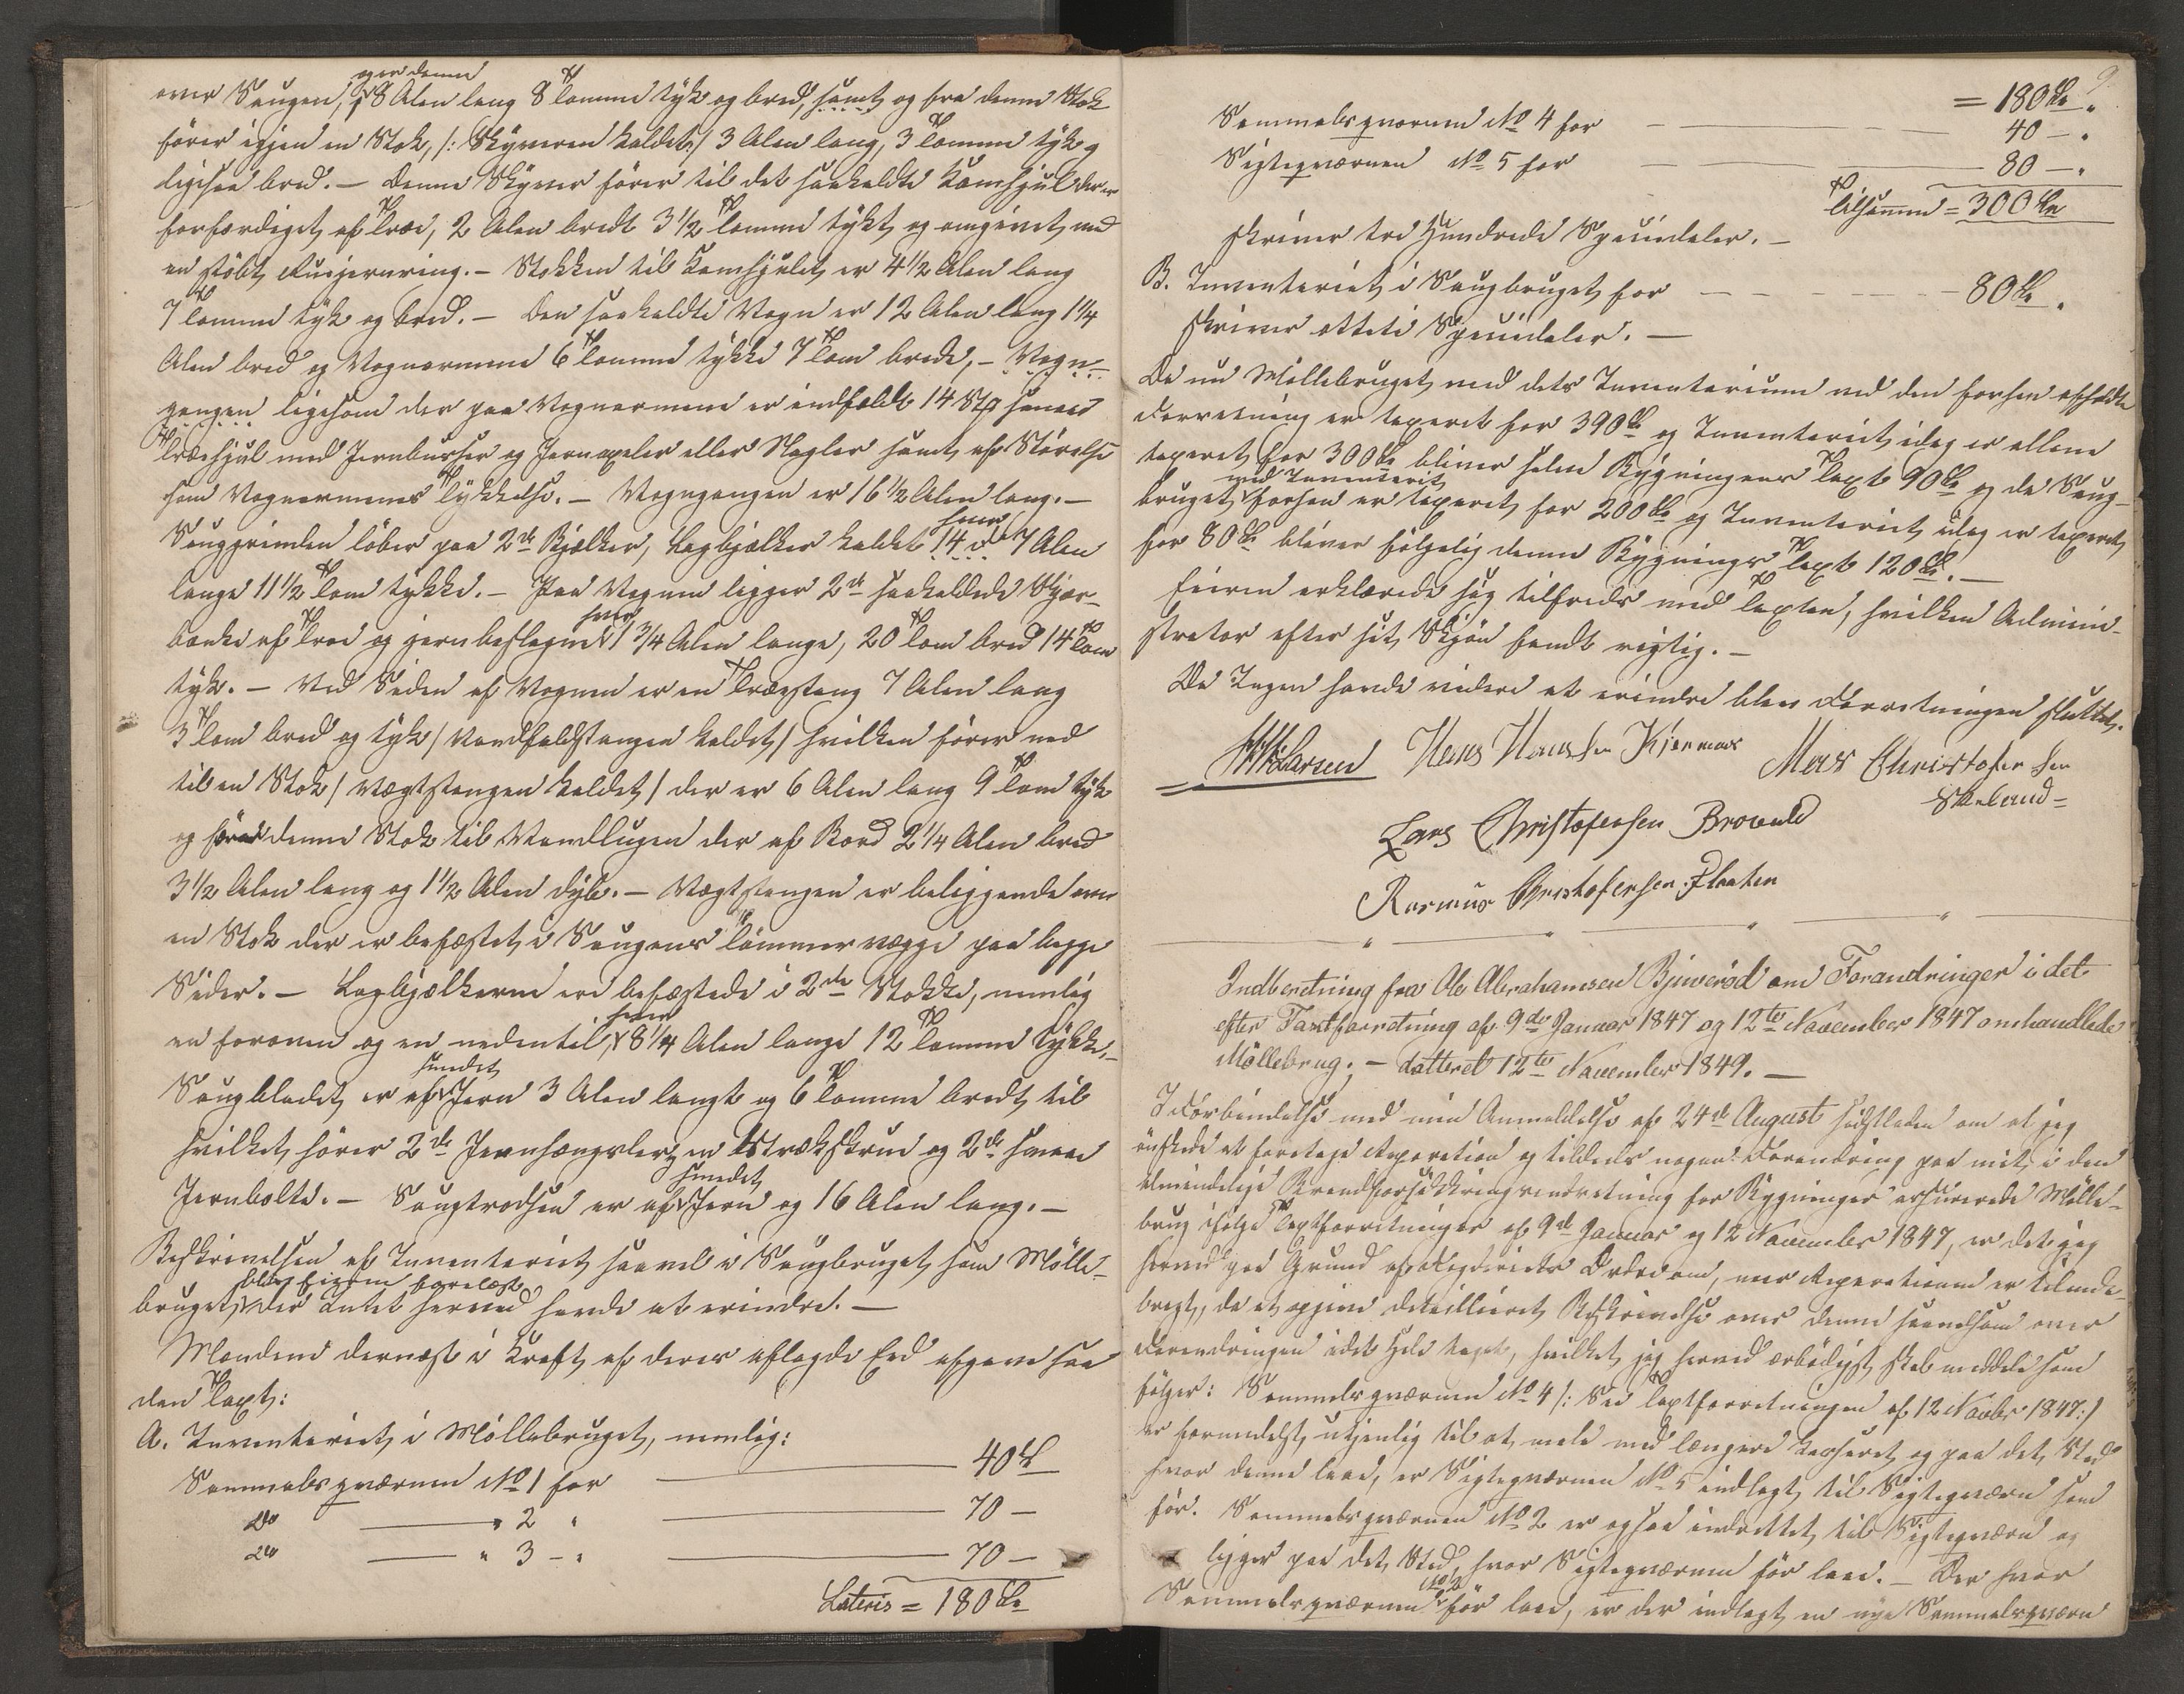 over Saugen, og er denne 8 Alen lang 8 Tomme tyk og bred, samt og fra denne Stok
fører igjen en Stok, /: Skyveren kaldet :/ 3 Alen lang, 3 Tomme tyk og
ligesaa bred. – Denne Skyver fører til det saakaldte Kamhjul der er
forfærdiget af Træe, 2 Alen bredt 3 1/2 Tomme tykt og omgivet med
en støbt Rujernring. – Stokken til Kamhjulet er 4 1/2 Alen lang
7 Tomme tyk og bred. – Den saakaldte Vogn er 12 Alen lang 1 1/4
Alen bred og Vognarmene 6 Tomme tykke 7 Tom brede, – Vogn-
gangen ligesom der paa Vognarmene er indfældt 14 Stk smaae
Træehjul med Jernbusser og Jernaxeler eller Nagler samt af Størelse
som Vognarmenes Tykkelse. – Vogngangen er 16 1/2 Alen lang. –
Sauggrinden løber paa 2de Bjelker, Lagbjælker kaldet hver 14 à 7 Alen
lange 11 1/2 Tom tykke. – Paa Vognen ligger 2de saakaldede
banke af Træe og jernbeslagne hver 1 3/4 Alen lange, 20 Tom bred 14 Tom
tyk. – Ved Siden af Vognen er en Træstang 7 Alen lang
3 Tom bred og tyk / Vandfaldstangen kaldet / hvilken fører ned
til en Stok / Vægtstangen kaldet / der er 6 Alen lang 9 Tom tyk
og fører denne Stok til Vandlugen der af Bord 2 1/4 Alen bred
3 1/2 Alen lang og 1 1/2 Alen dyb. – Vægtstangen er beliggende over
en Stok der er befæstet i Saugens Tømmervægge paa begge
Sider. – Lagbjælkerne ere befæstede i 2de Stokke, nemlig
en foroven og en nedentil, hver 8 1/4 Alen lange 12 Tomme tykke. –
Saugbladet er af smedet Jern 3 Alen langt og 6 Tomme bredt til
hvilket hører 2de Jernhængsler, en Strækskrue og 2de smaae
Jernbolte. – Saugtrodsen er af smedet Jern og 16 Alen lang. –
Beskrivelsen af Inventariet saavel i Saugbruget som Mølle-
bruget, blev Eieren forelæst der Intet herved havde at erindre. –
Mændene dernæst i Kraft af deres aflagde Eed afgave saa-
dan Taxt:
A. Inventariet i Møllebruget, nemlig:
Sammalsqværnen No 1 for — 40 Sp
Do — " 2 " — 70 –
Do — " 3 – " — 70 –
Lateris = 180 Sp
9
= 180 Sp "
Sammalsqværnen No 4 for — 40 – "
Sigteqværnen No 5 for — 80 – "
Tilsammen = 300 Sp
skriver tre Hundrede Speciedaler. –
B. Inventariet i Saugbruget for — 80 Sp "
skriver otteti Speciedaler. –
Da nu Møllebruget med dets Inventarium ved den forhen afholdte
Forretning er taxeret for 390 Sp og Inventariet idag er allene
taxeret for 300 Sp bliver selve Bygningens Taxt 90 Sp og da Saug-
bruget med Inventariet forhen er taxeret for 200 Sp og Inventariet idag er taxeret
for 80 Sp bliver følgelig denne Bygnings Taxt 120 Sp. –
Eieren erklærede sig tilfreds med Taxten, hvilken Admini-
strator efter sit Skjøn fandt rigtig. –
Da Ingen havde videre at erindre blev Forretningen sluttet.
Larsen Hans Hansen Kjernaas Mads Christofersen
Lars Christofersen Browald
Rasmus Christofersen Plaaten
Indberetning fra Ole Abrahamsen Bjuverød om Forandringer i det
efter Taxtforretning af 9de Januar 1847 og 12te November 1847 omhandlede
Møllebrug. – datteret 12te November 1849. –
I Forbindelse med min Anmeldelse af 24de August sidstleden om at jeg
ønskede at foretage Reparation og tildeels nogen Forandring paa mit i den
almindelige Brandforsikkringsindretning for Bygninger assurerede Mølle-
brug ifølge Taxtforretninger af 9de Januar og 12 November 1847, er det jeg
herved paa Grund af Ordre om, naar Reparationen er tilende-
bragt, da at opgive detailleret Beskrivelse over denne saavelsom over
Forandringen i det Hele taget, hvilket jeg herved ærbødigst skal meddele som
følger: Sammalsqværnen No 4 /: See Taxtforretningen af 12 Novbr 1847 :/
er formedelst utjenlig til at male med længere kasseret og paa det Sted
hvor denne laae, er Sigteqværnen No 5 indlagt til Sigteqværn som
før. Sammalsqværnen No 2 er ogsaa indrettet til Sigteqværn og
ligger paa det Sted, hvor Sigteqværnen før laae. – Der hvor
Sammalsqværnen No 2 før laae, er der indlagt en nye Sammalsqværn